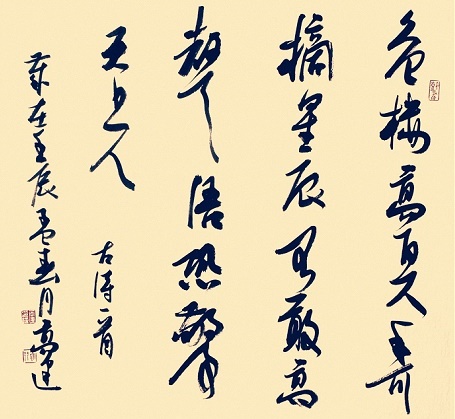 危楼高百尺手可
摘星辰不敢高
聲语恐驚
天上人
古诗一首
歲在壬辰孟春月高